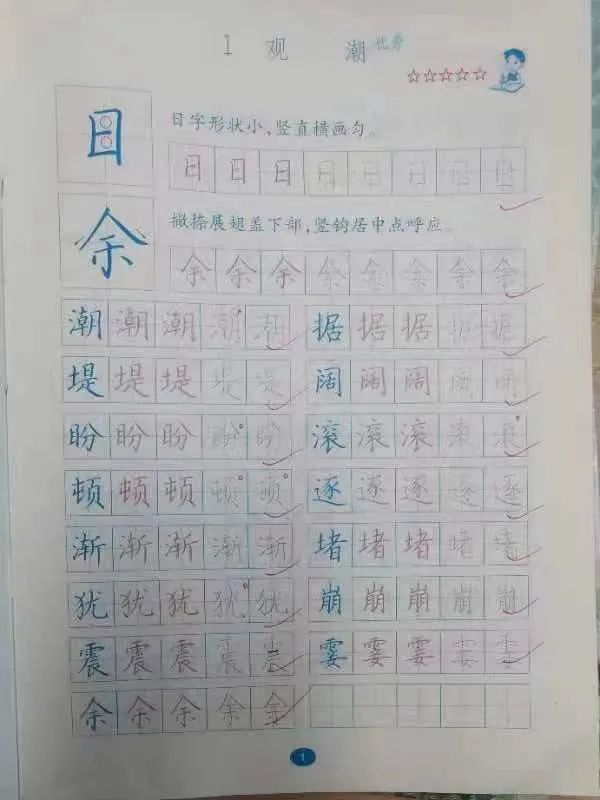 1 观 潮 优秀
☆☆☆☆☆
日 日字形状小，竖直横画匀。
日 日 日 日 日 日 日 日
余 撇捺展翅盖下部，竖钩居中点呼应。
余 余 余 余 余 余 余 余
潮 潮 潮 潮 潮 据 据 据 据 据
堤 堤 堤 堤 堤 阔 阔 阔 阔 阔
盼 盼 盼 盼 盼 滚 滚 滚 滚 滚
顿 顿 顿 顿 顿 逐 逐 逐 逐 逐
渐 渐 渐 渐 渐 堵 堵 堵 堵 堵
犹 犹 犹 犹 犹 崩 崩 崩 崩 崩
震 震 震 震 震 霎 霎 霎 霎 霎
余 余 余 余 余
1